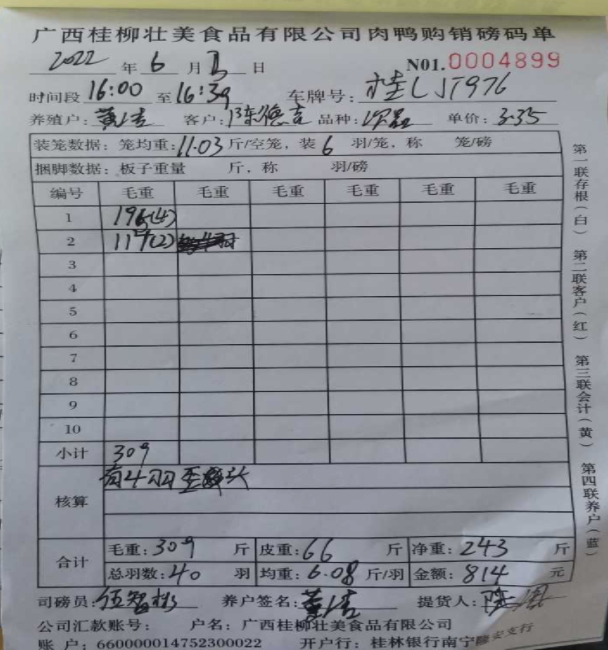 广西桂柳壮美食品有限公司肉鸭购销磅码单
2022 年 6 月 日 N01.0004899
时间段 16:00 至 16:39 车牌号: 桂L J7976
养殖户: 黄 客户: 陈德 品种: 单价: 3.35
装笼数据: 笼均重: 11.03 斤/空笼, 装 6 羽/笼, 称 笼/磅
捆脚数据: 板子重量 斤, 称 羽/磅
编号 毛重 毛重 毛重 毛重 毛重 毛重
1 196(4)
2 117(2)
3
4
5
6
7
8
9
10
小计 309
核算 有4羽歪 头
合计 毛重: 309 斤 皮重: 66 斤 净重: 243 斤
总羽数: 40 羽 均重: 6.08 斤/羽 金额: 814 元
司磅员: 伍智彬 养户签名: 黄 提货人: 陈
公司汇款账号: 户名: 广西桂柳壮美食品有限公司
账 户: 660000014752300022 开户行: 桂林银行南宁隆安支行
第一联存根(白) 第二联客户(红) 第三联会计(黄) 第四联养户(蓝)